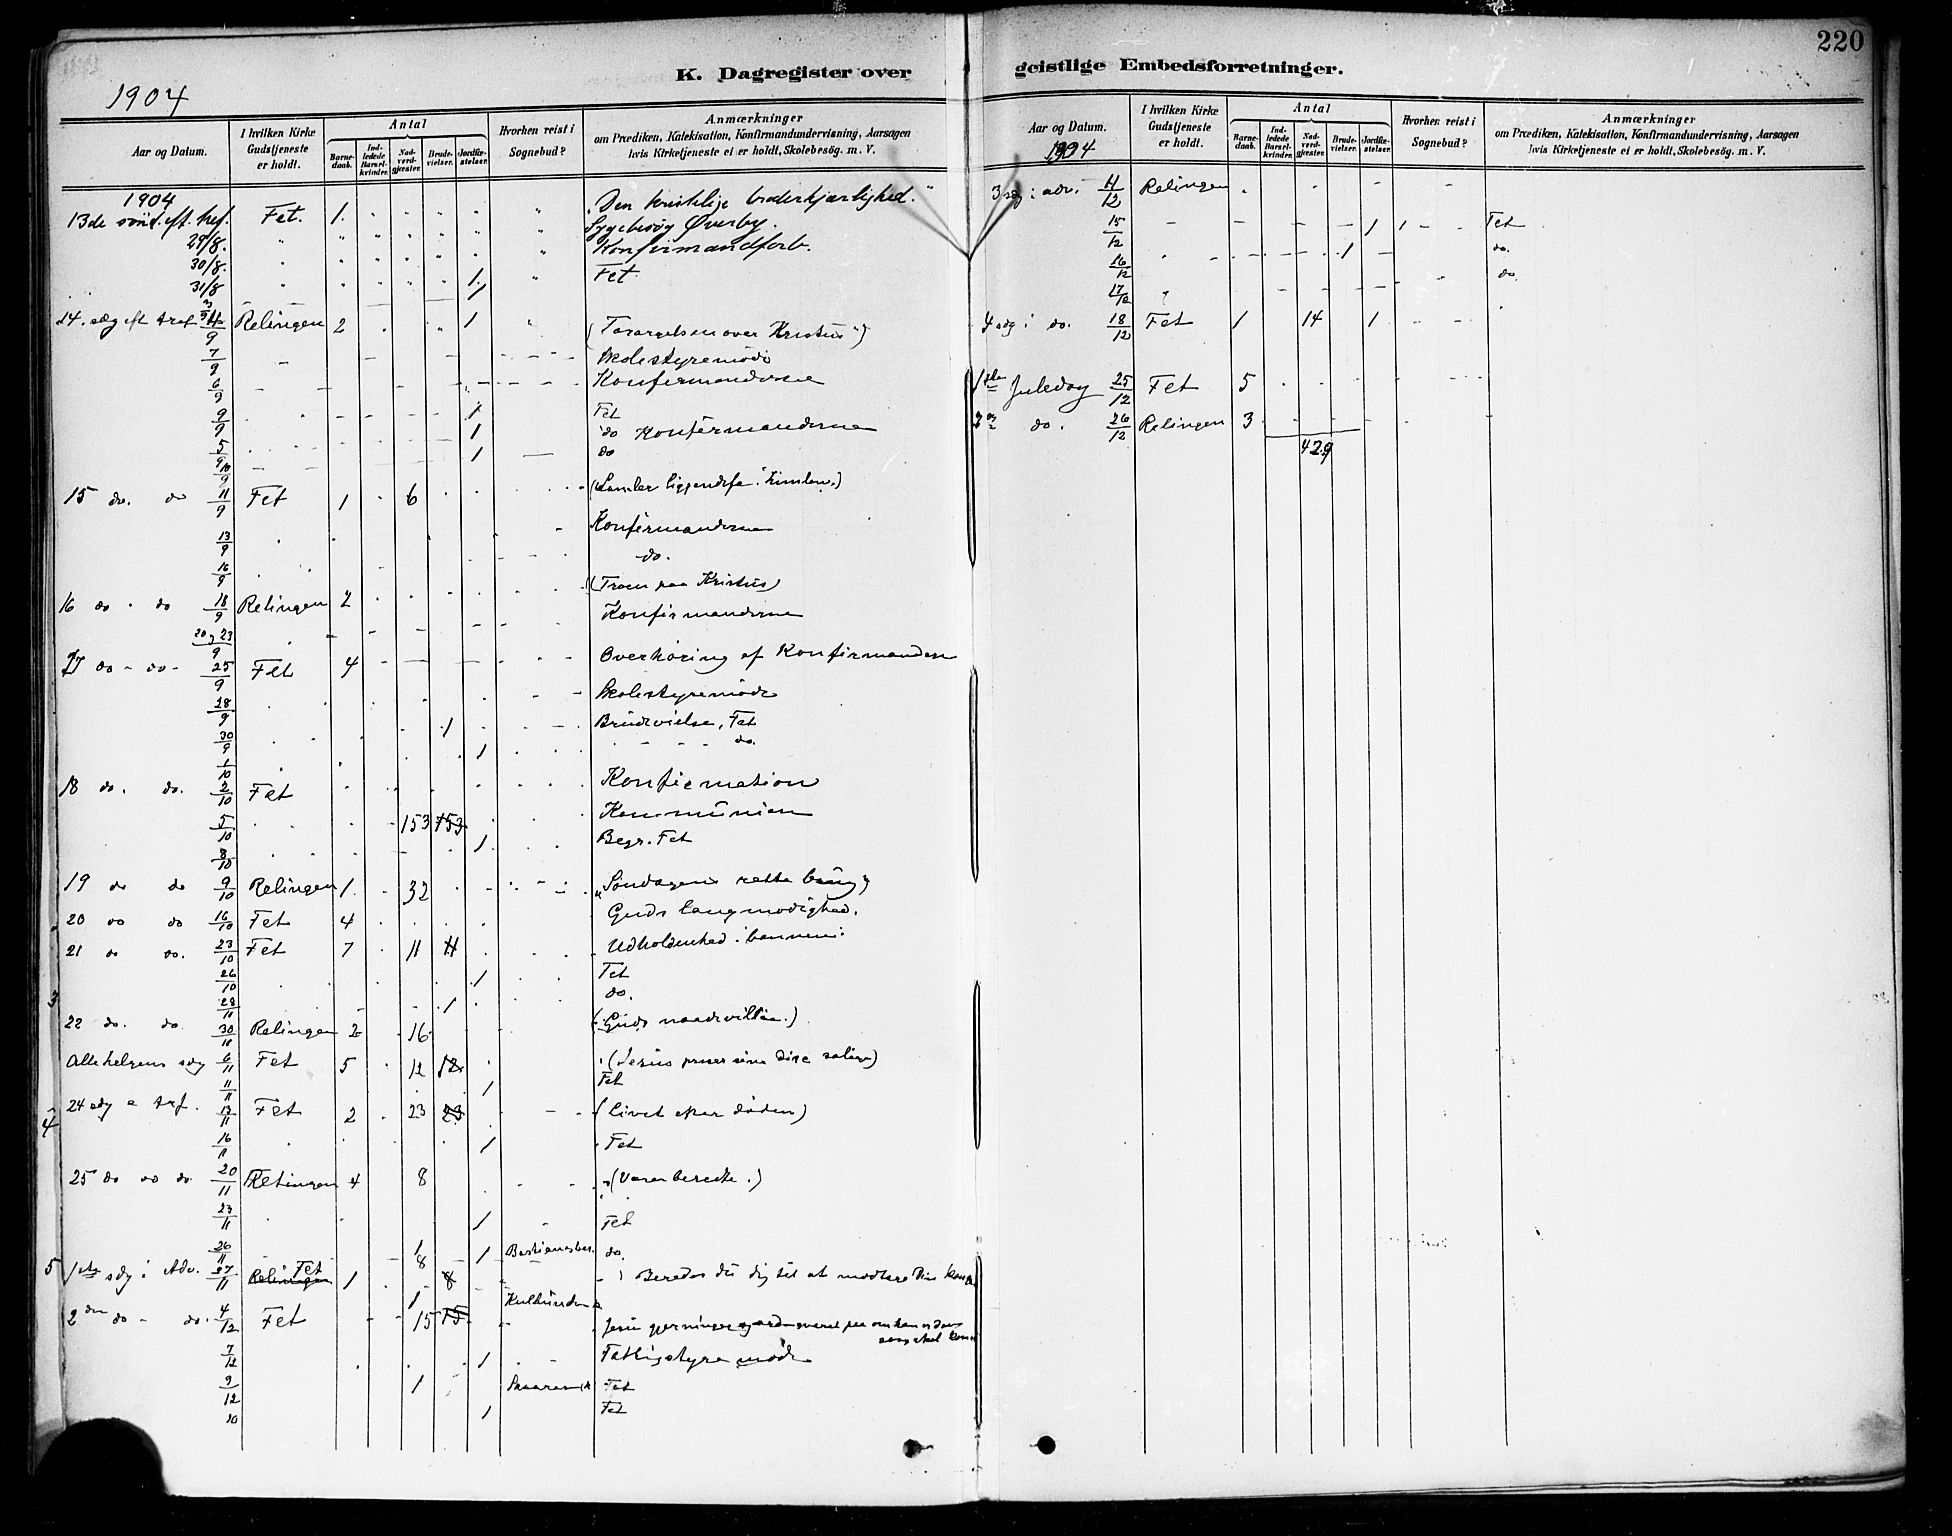 220
K. Dagregister over geistlige Embedsforretninger.
1904
Aar og Datum. I hvilken Kirke Gudstjeneste er holdt. Antal Hvorhen reist i Sognebud? Anmærkninger
om Prædiken, Katekisation, Konfirmandundervisning, Aarsagen hvis Kirketjeneste ei er holdt, Skolebesög. m. V.
Barnedaab. Indledede Barselkvinder. Nadverdgjester. Brudevielser. Jordfæstelser.
1904
13de sönd. eft. tref. Fet. 1. „Den kristelige broderkjærlighed."
29/8. Sygebesög Øverby.
30/8. Konfirmandforb.
31/8 1. Fet
3/9 1
14. sdg eft tref 4/9 Relingen 2 1 (Forargelsen over Kristus")
7/9 Skolestyremöde
6/9 Konfirmanderne
9/9 1 Fet
1 do Konfirmanderne
5/9 1 do
10/9
15 do. do 11/9 Fet 1 6
13/9 Konfirmanderne
16/9 do.
16 do. do 18/9 Relingen 2 (Troen paa Kristus)
20 og 23/9 Konfirmanderne
17 do - do - 25/9 Fet 4 Overhöring af Konfirmanderne
28/9 Skolestyremöde
30/9 1 Brudevielse, Fet
1/10 1 do.
18 do. do. 2/10 Fet Konfirmation
5/10 153 153 Kommunion
8/10 1 Begr. Fet
19 do do 9/10 Relingen 1. 32 „Söndagens rette brug"
20 do do 16/10 Fet 4 Guds langmodighed.
21 do do. 23/10 Fet 7 11 11 Udholdenhed i bönnen.
26/10 1 Fet
28/10 1 do.
22 do. do. 30/10 Relingen 2 16 (Guds naadevillie.)
Allehelgens sdg 6/11 Fet 5 12 12 (Jesus priser sine Disc salige)
11/11 1 Fet
24 sdg e tref. 13/11 Fet 2 23 23 (Livet efter döden)
16/11 1 Fet
25 do do do 20/11 Relingen 4 8 (Være beredte.)
23/11 1 Fet
26/11 1 1 do.
1ste sdg i Adv. 27/11 Relingen Fet 1 8 8 Bereder du dig til at modtage Din konge
1
2den do - do. 4/12 Fet 15 15
7/12 1 Fattigstyremöde
9/12 1 Fet
10 1 Fet
3
4
5
Aar og Datum. I hvilken Kirke Gudstjeneste er holdt. Antal Hvorhen reist i Sognebud? Anmærkninger
om Prædiken, Katekisation, Konfirmandundervisning, Aarsagen hvis Kirketjeneste ei er holdt, Skolebesög. m. V.
Barnedaab. Indledede Barselkvinder. Nadverdgjester. Brudevielser. Jordfæstelser.
1904
3 sdg i adv. 11/12 Relingen
15/12 1 1 Fet
16/12 1 do.
17/12 do
4 sdg i do. 18/12 Fet 1 14 1
1ste Juledag 25/12 Fet 5
2den do. 26/12 Relingen 3
429